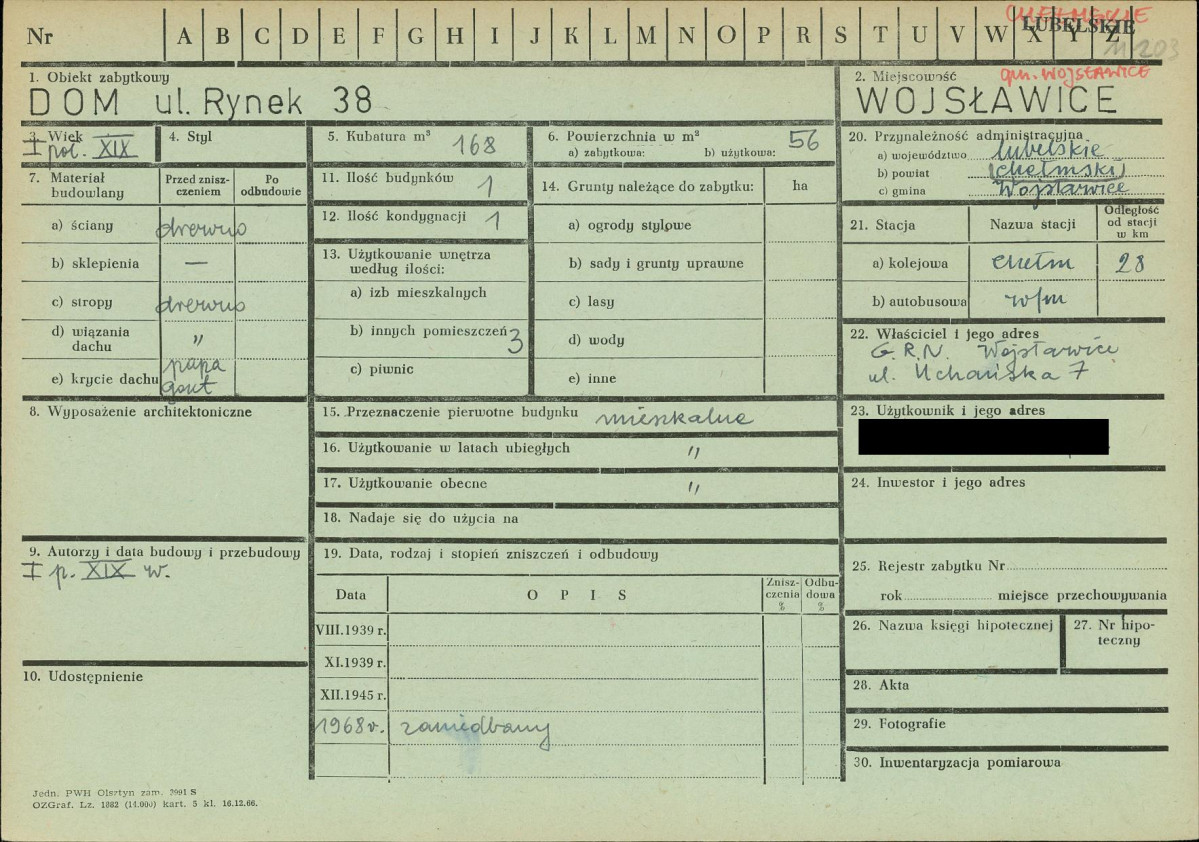 Nr A B C D E F G H I J K L M N O P R S T U V W X Y Z
CHEŁMSKIE
LUBELSKIE
11203
gm. WOJSŁAWICE
1. Obiekt zabytkowy
DOM ul. Rynek 38
2. Miejscowość
WOJSŁAWICE
3. Wiek
I poł. XIX
4. Styl
5. Kubatura m³ 168
6. Powierzchnia w m²
a) zabytkowa: b) użytkowa: 56
7. Materiał budowlany
Przed zniszczeniem
Po odbudowie
a) ściany drewno
b) sklepienia —
c) stropy drewno
d) wiązania dachu "
e) krycie dachu papa
gont
8. Wyposażenie architektoniczne
9. Autorzy i data budowy i przebudowy
I p. XIX w.
10. Udostępnienie
11. Ilość budynków 1
12. Ilość kondygnacji 1
13. Użytkowanie wnętrza
według ilości:
a) izb mieszkalnych
b) innych pomieszczeń 3
c) piwnic
14. Grunty należące do zabytku: ha
a) ogrody stylowe
b) sady i grunty uprawne
c) lasy
d) wody
e) inne
15. Przeznaczenie pierwotne budynku mieszkalne
16. Użytkowanie w latach ubiegłych "
17. Użytkowanie obecne "
18. Nadaje się do użycia na
19. Data, rodzaj i stopień zniszczeń i odbudowy
Data O P I S Zniszczenia % Odbudowa %
VIII.1939 r.
XI.1939 r.
XII.1945 r.
1968 r. zaniedbany
20. Przynależność administracyjna
a) województwo lubelskie
b) powiat (chełmski)
c) gmina Wojsławice
21. Stacja Nazwa stacji Odległość od stacji w km
a) kolejowa Chełm 28
b) autobusowa w/m
22. Właściciel i jego adres
G.R.N. Wojsławice
ul. Uchańska 7
23. Użytkownik i jego adres
24. Inwestor i jego adres
25. Rejestr zabytku Nr
rok miejsce przechowywania
26. Nazwa księgi hipotecznej
27. Nr hipoteczny
28. Akta
29. Fotografie
30. Inwentaryzacja pomiarowa
Jedn. PWH Olsztyn zam. 2991 S
OZGraf. Lz. 1882 (14.000) kart. 5 kl. 16.12.66.